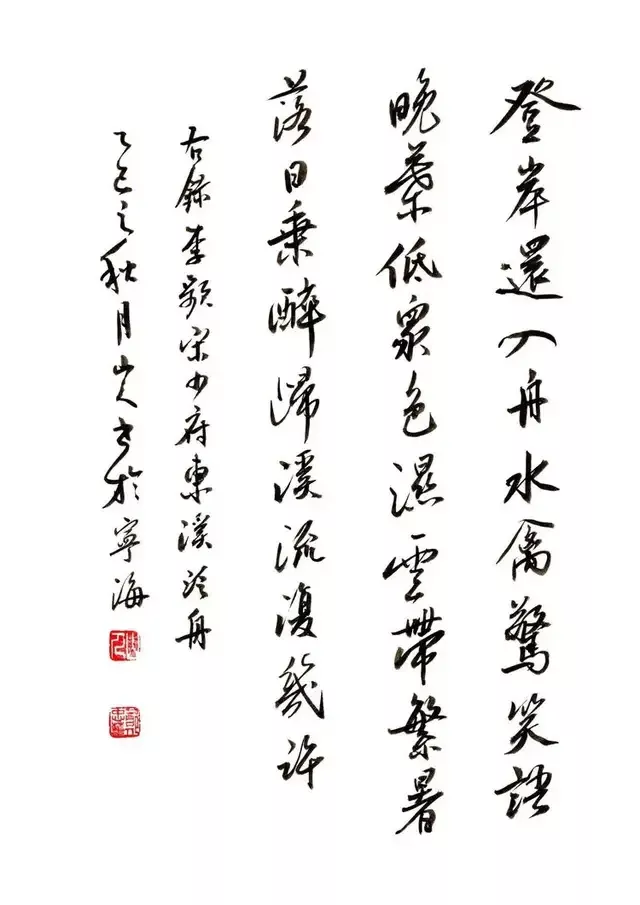 登岸還入舟水禽驚笑語
晚葉低眾色濕雲帶繁暑
落日乘醉歸溪流復幾許
右錄李頎宋少府東溪泛舟
乙巳之秋月山人書於寧海